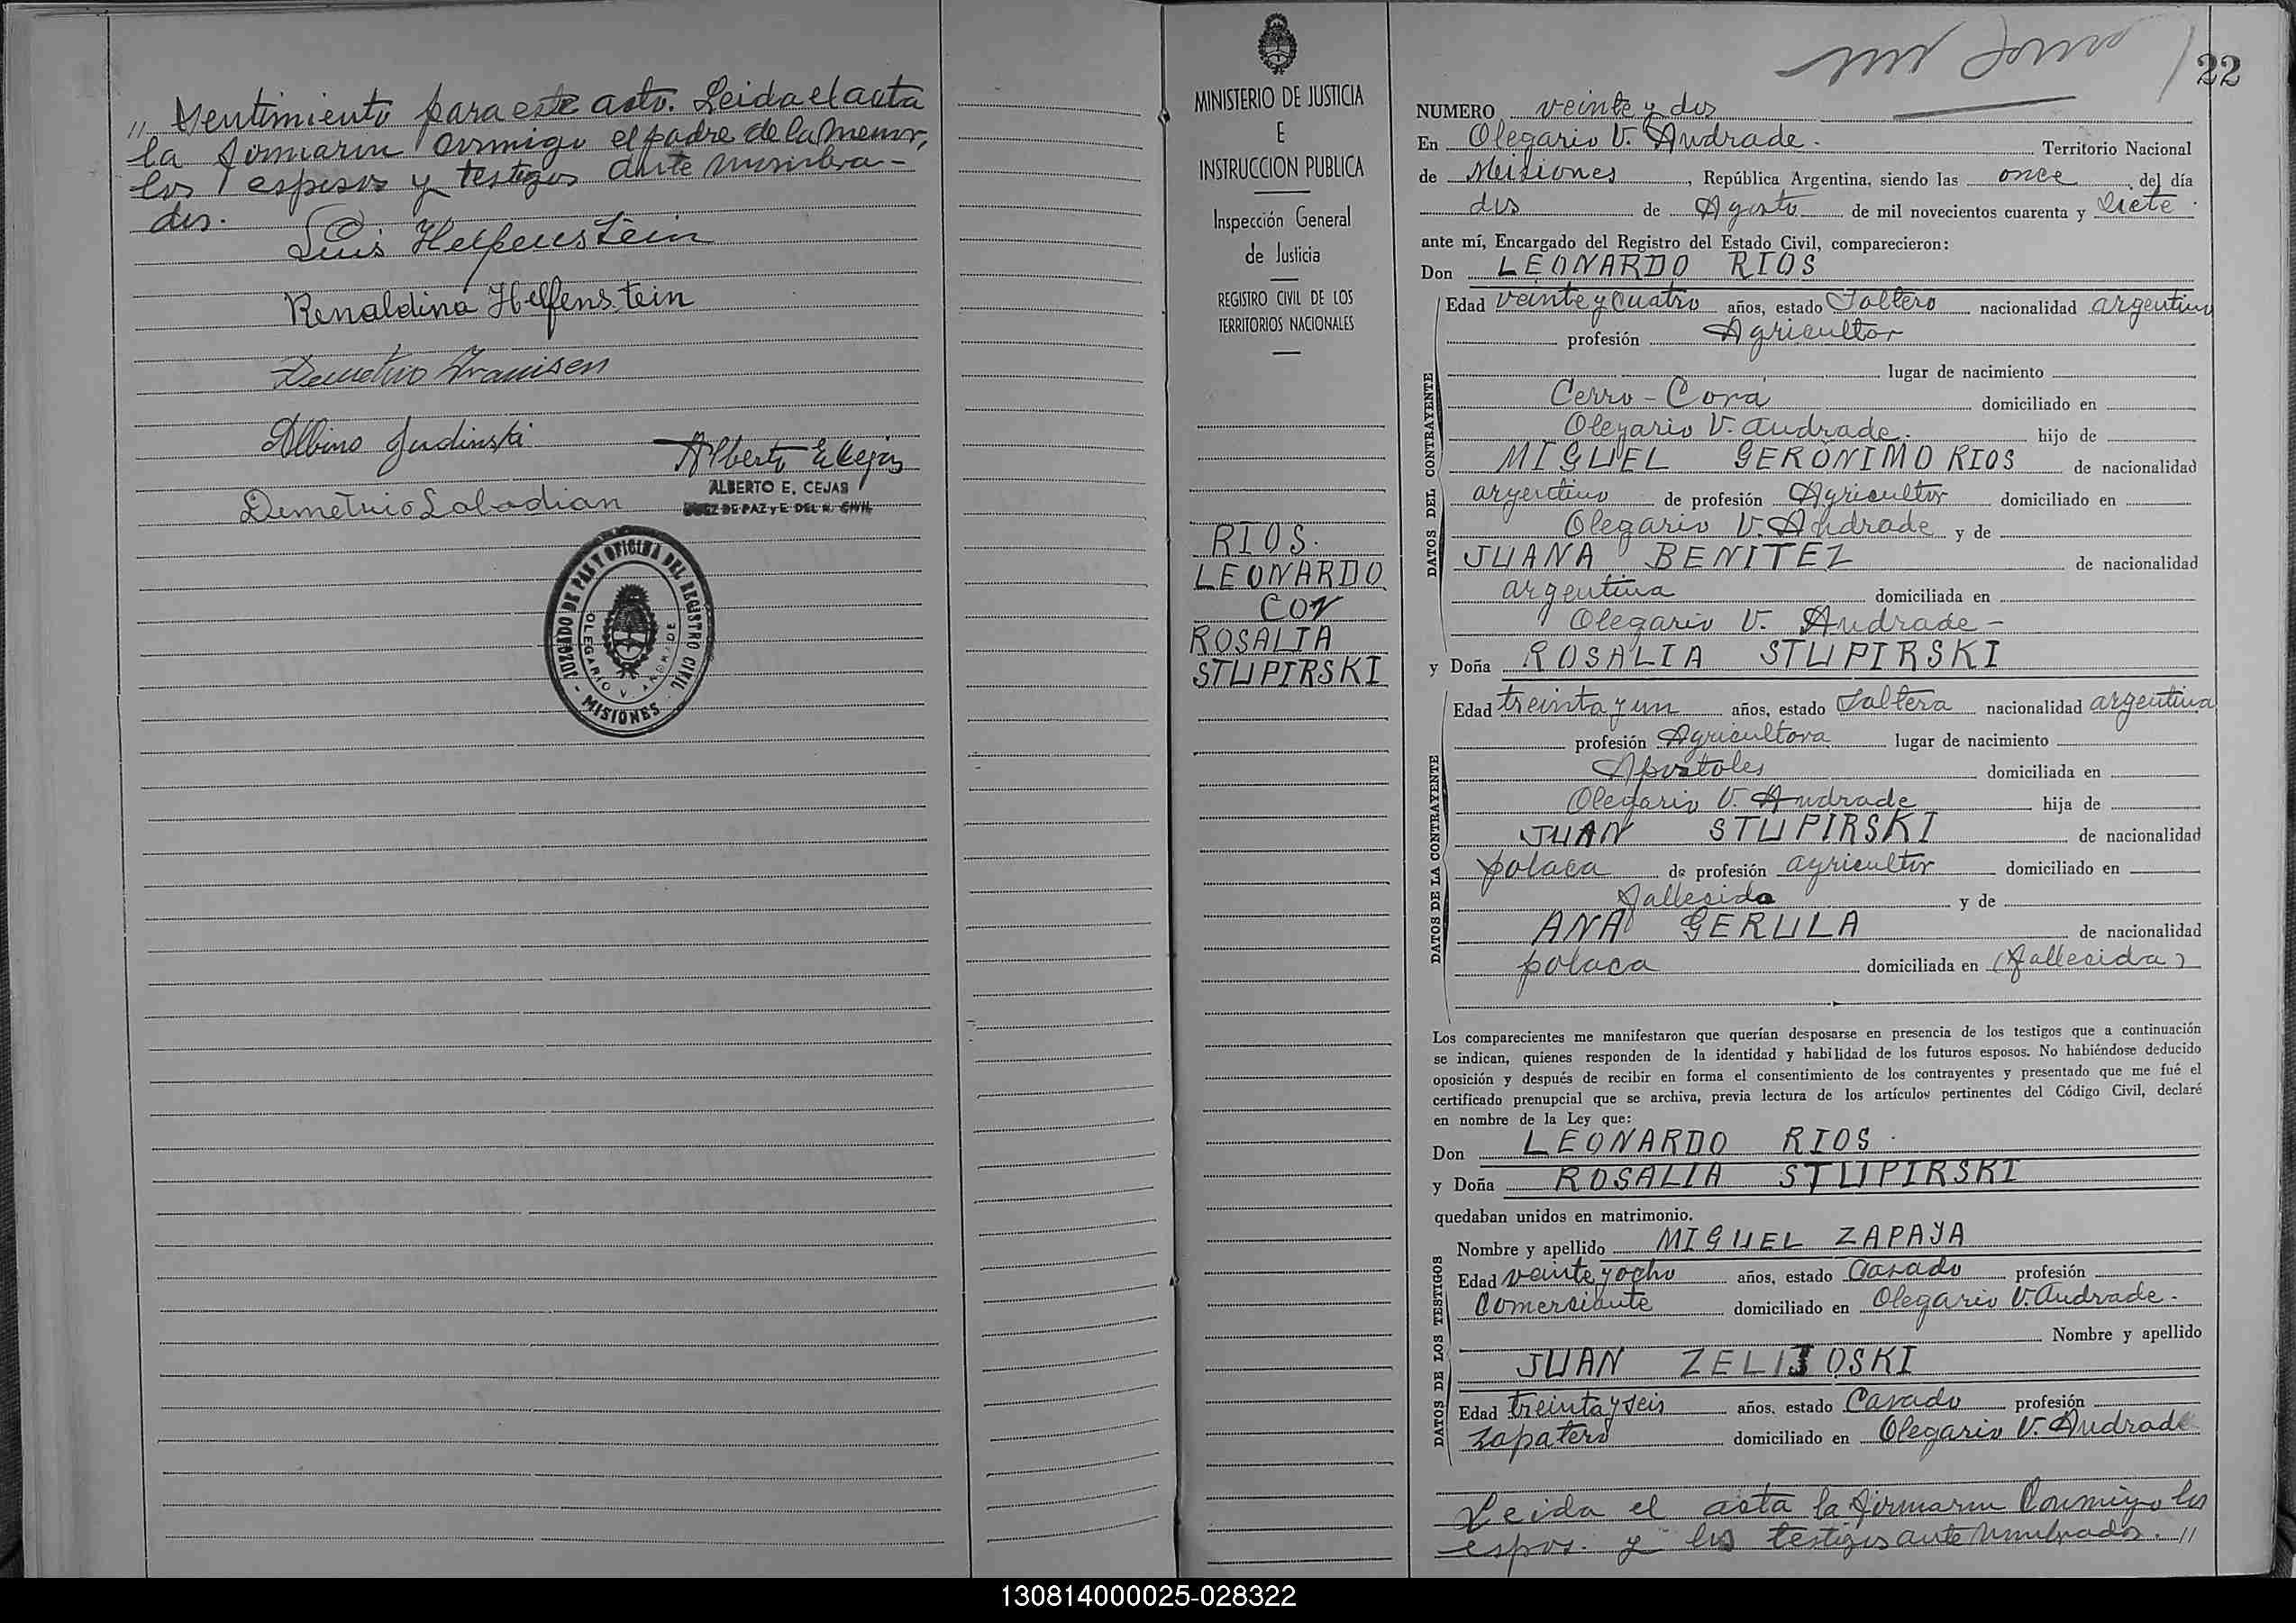 " sentimiento para este acto. Leida el acta
la firmaron conmigo el padre de la menor,
los esposos y testigos ante nombra-
dos.
Luis Helfenstein
Renaldina Helfenstein
Demetrio
Albino Judinski
Alberto E Cejas
ALBERTO E. CEJAS
JUEZ DE PAZ y E. DEL R. CIVIL
Demetrio Labadian
JUZGADO DE PAZ Y OFICINA DEL REGISTRO CIVIL
OLEGARIO V. ANDRADE
- MISIONES -
MINISTERIO DE JUSTICIA
E
INSTRUCCION PUBLICA
Inspección General
de Justicia
REGISTRO CIVIL DE LOS
TERRITORIOS NACIONALES
RIOS.
LEONARDO
CON
ROSALIA
STUPIRSKI
22
NUMERO veinte y dos
En Olegario V. Andrade. Territorio Nacional
de Misiones, República Argentina, siendo las once del día
dos de Agosto de mil novecientos cuarenta y siete
ante mí, Encargado del Registro del Estado Civil, comparecieron:
Don LEONARDO RIOS
DATOS DEL CONTRAYENTE
Edad veinte y cuatro años, estado Soltero nacionalidad argentino
profesión Agricultor
lugar de nacimiento
Cerro-Corá domiciliado en
Olegario V. Andrade. hijo de
MIGUEL GERONIMO RIOS de nacionalidad
argentino de profesión Agricultor domiciliado en
Olegario V. Andrade y de
JUANA BENITEZ de nacionalidad
argentina domiciliada en
Olegario V. Andrade -
y Doña ROSALIA STUPIRSKI
DATOS DE LA CONTRAYENTE
Edad treinta y un años, estado Soltera nacionalidad argentina
profesión Agricultora lugar de nacimiento
Apostoles domiciliada en
Olegario V. Andrade hija de
JUAN STUPIRSKI de nacionalidad
polaca de profesión agricultor domiciliado en
fallecido y de
ANA GERULA de nacionalidad
polaca domiciliada en (fallecida)
Los comparecientes me manifestaron que querían desposarse en presencia de los testigos que a continuación
se indican, quienes responden de la identidad y habilidad de los futuros esposos. No habiéndose deducido
oposición y después de recibir en forma el consentimiento de los contrayentes y presentado que me fué el
certificado prenupcial que se archiva, previa lectura de los artículos pertinentes del Código Civil, declaré
en nombre de la Ley que:
Don LEONARDO RIOS.
y Doña ROSALIA STUPIRSKI
quedaban unidos en matrimonio.
DATOS DE LOS TESTIGOS
Nombre y apellido MIGUEL ZAPAYA
Edad veinte y ocho años, estado Casado profesión
Comerciante domiciliado en Olegario V. Andrade.
Nombre y apellido
JUAN ZELIJOSKI
Edad treinta y seis años, estado Casado profesión
Zapatero domiciliado en Olegario V. Andrade
Leida el acta la firmaron Conmigo los
espos. y los testigos ante nombrados. "
130814000025-028322